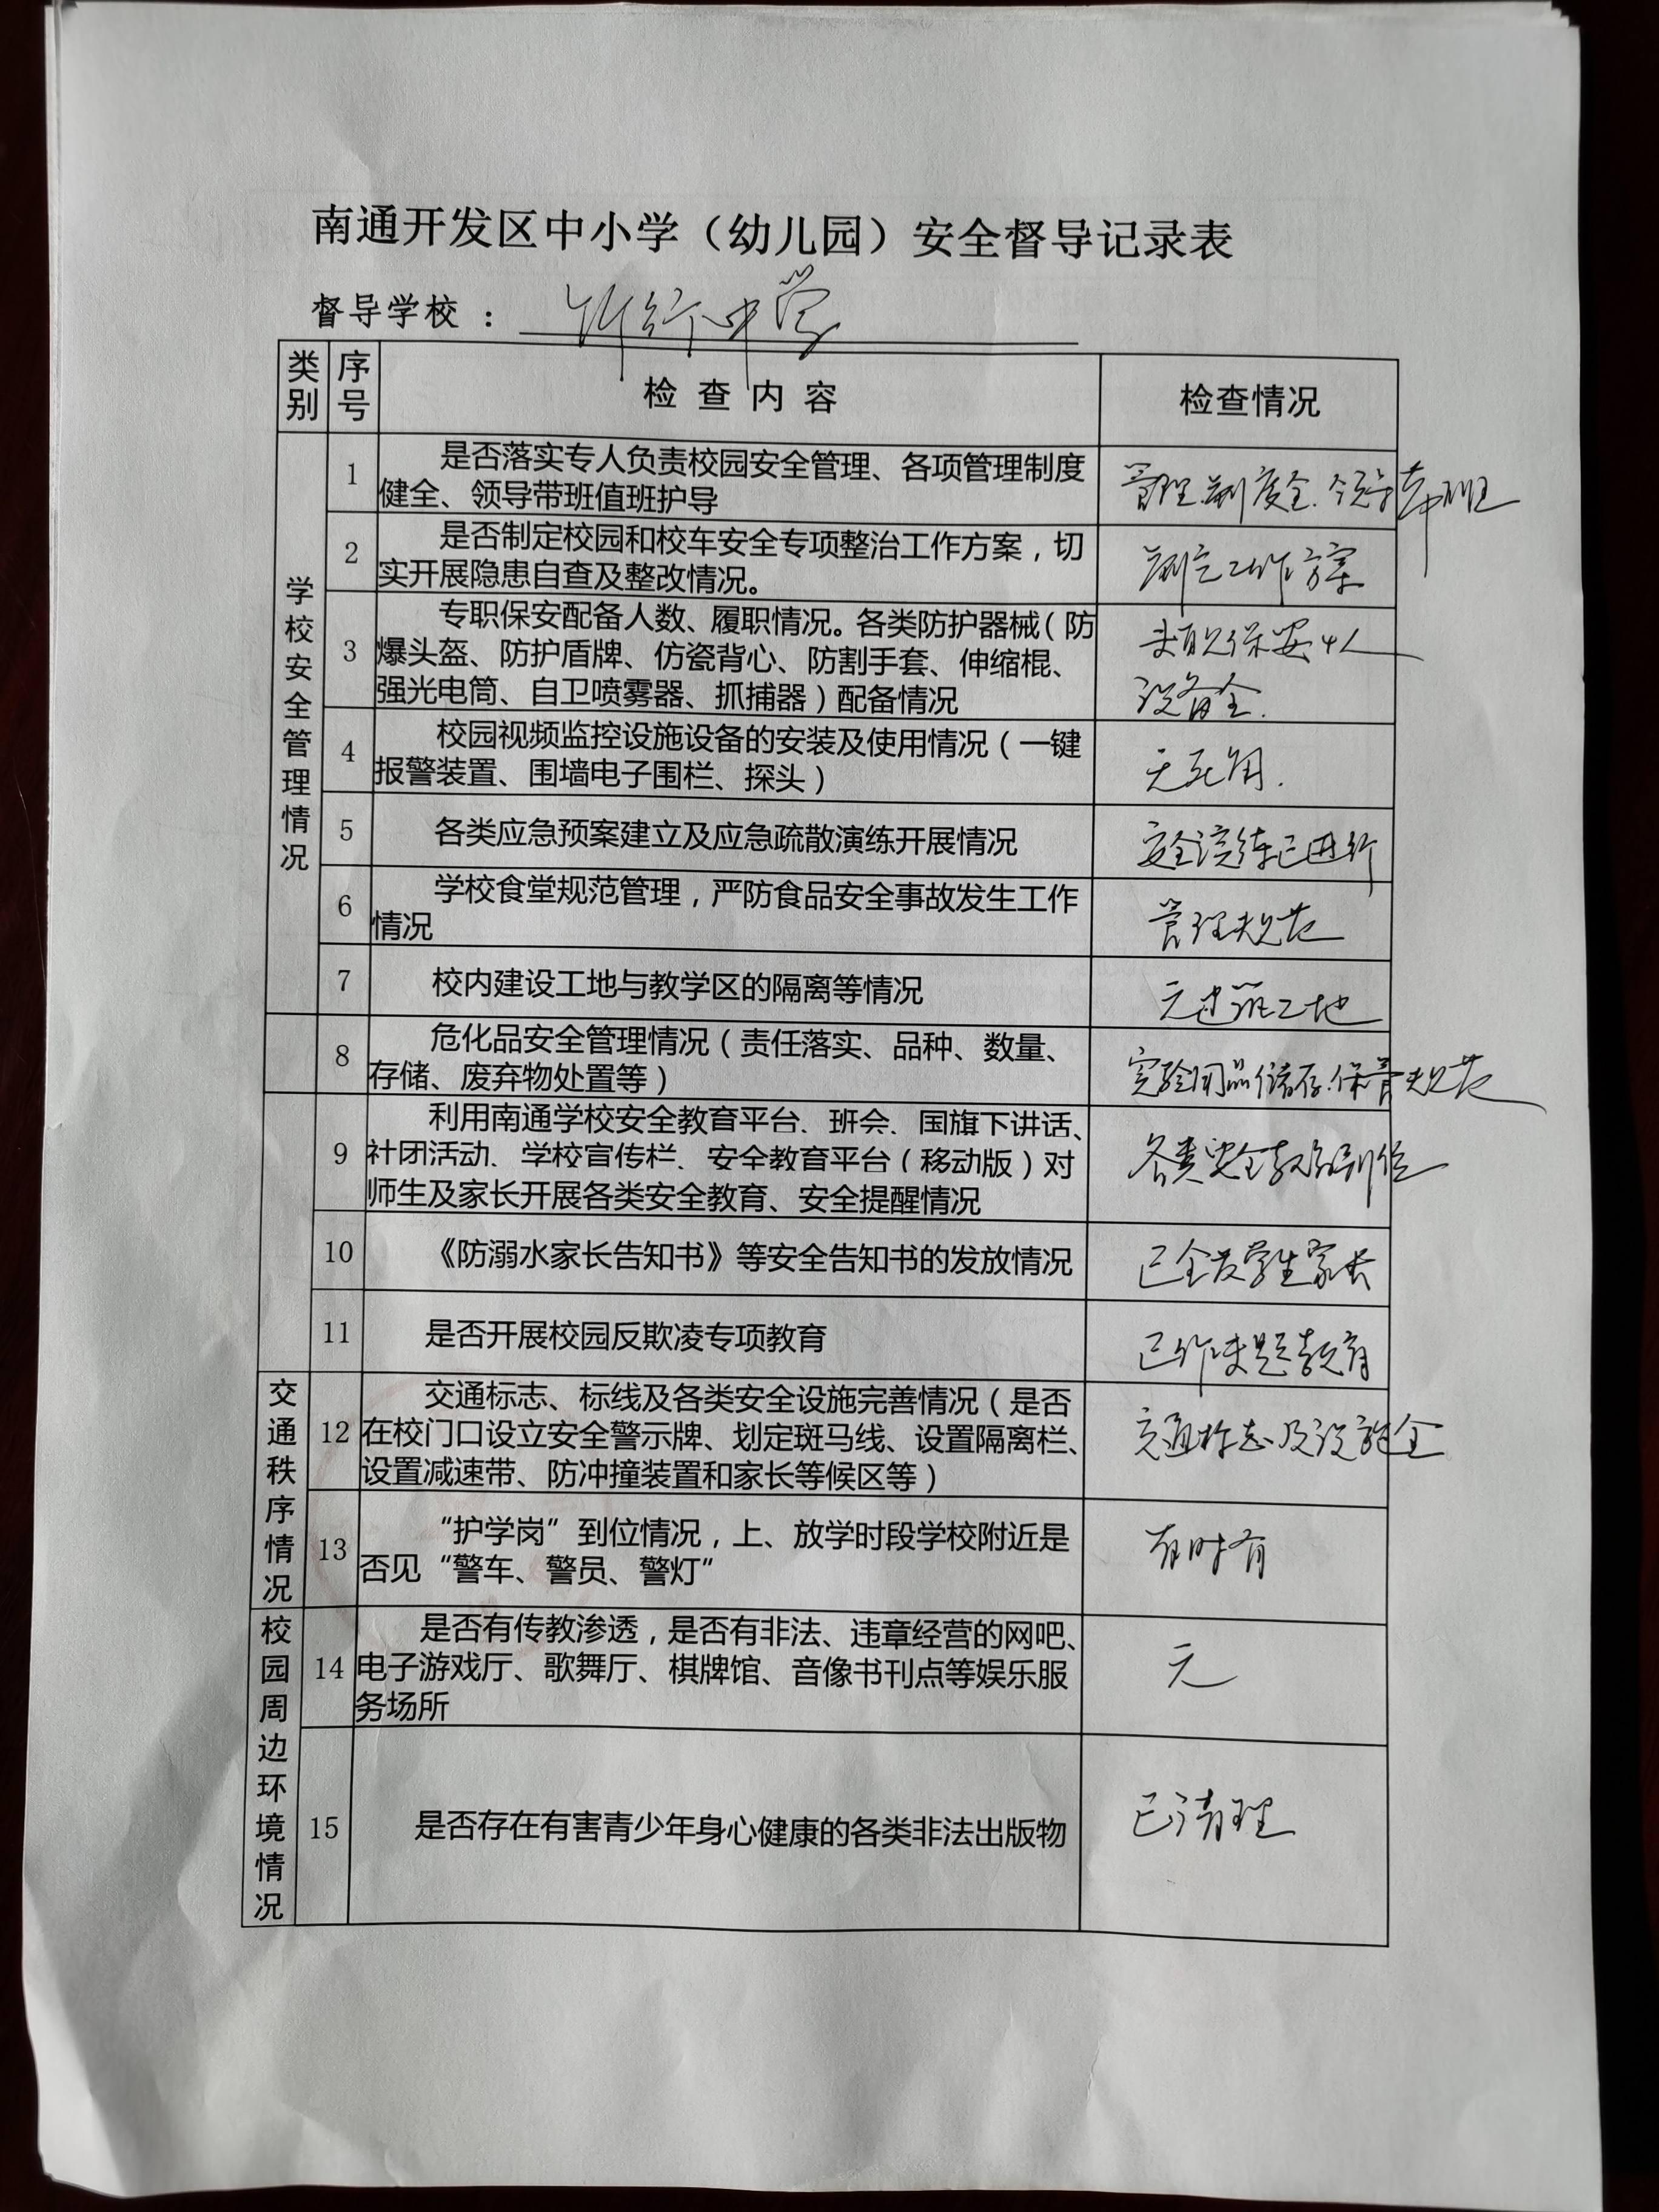 南通开发区中小学（幼儿园）安全督导记录表
督导学校：竹行中学
类别 序号 检查内容 检查情况
学校安全管理情况
1 是否落实专人负责校园安全管理、各项管理制度
健全、领导带班值班护导
管理制度全.领导带班
2 是否制定校园和校车安全专项整治工作方案，切
实开展隐患自查及整改情况。
制定工作方案
3 专职保安配备人数、履职情况。各类防护器械（防
爆头盔、防护盾牌、仿瓷背心、防割手套、伸缩棍、
强光电筒、自卫喷雾器、抓捕器）配备情况
专职保安4人
设备全.
4 校园视频监控设施设备的安装及使用情况（一键
报警装置、围墙电子围栏、探头）
无死角.
5 各类应急预案建立及应急疏散演练开展情况
安全演练已进行
6 学校食堂规范管理，严防食品安全事故发生工作
情况
管理规范
7 校内建设工地与教学区的隔离等情况
无建筑工地
8 危化品安全管理情况（责任落实、品种、数量、
存储、废弃物处置等）
实验用品储存.保管规范
9 利用南通学校安全教育平台、班会、国旗下讲话、
社团活动、学校宣传栏、安全教育平台（移动版）对
师生及家长开展各类安全教育、安全提醒情况
各类安全教育到位
10 《防溺水家长告知书》等安全告知书的发放情况
已全发学生家长
11 是否开展校园反欺凌专项教育
已作专题教育
交通秩序情况
12 交通标志、标线及各类安全设施完善情况（是否
在校门口设立安全警示牌、划定斑马线、设置隔离栏、
设置减速带、防冲撞装置和家长等候区等）
交通标志及设施全
13 “护学岗”到位情况，上、放学时段学校附近是
否见“警车、警员、警灯”
有时有
校园周边环境情况
14 是否有传教渗透，是否有非法、违章经营的网吧、
电子游戏厅、歌舞厅、棋牌馆、音像书刊点等娱乐服
务场所
无
15 是否存在有害青少年身心健康的各类非法出版物
已清理